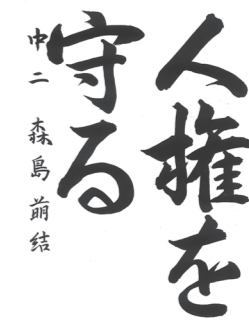 人権を
守る
中二 森島萌結